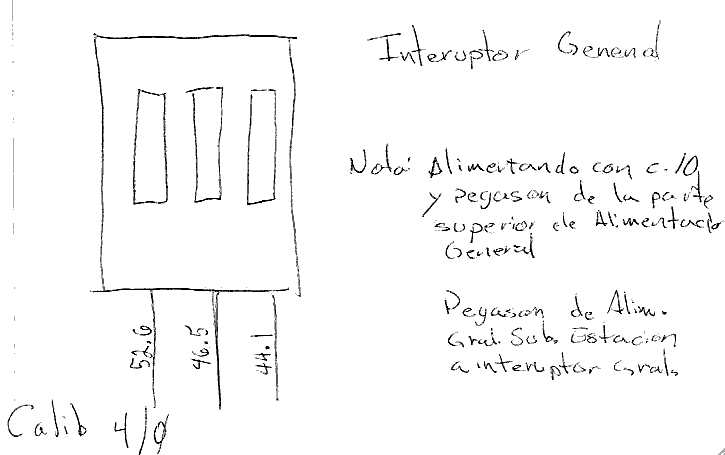 Interuptor General
Nota: Alimentando con c.10
y pegason de la parte
superior de Alimentacio
General
Pegason de Alim.
Gral. Sub. Estacion
a interuptor Grals
52.6
46.5
44.1
Calib 4/0